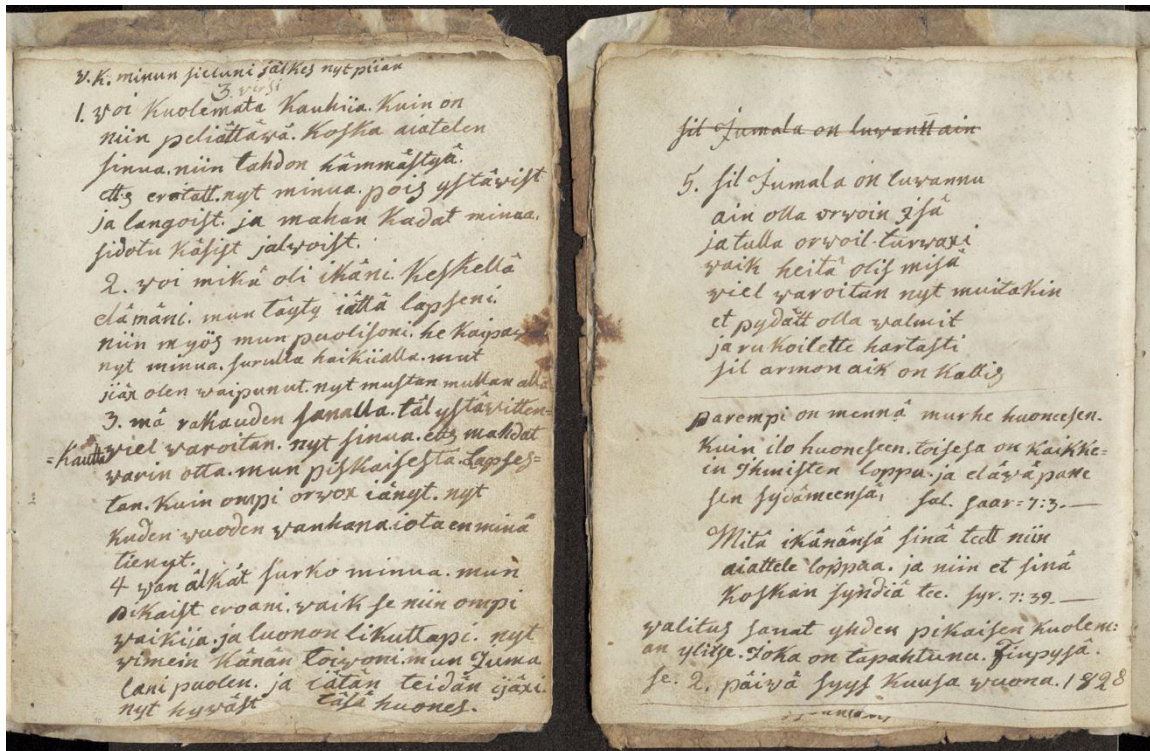 V. K. minun sieluni jälkes nyt piian
3. versi
1. voi Kuolemata Kauhiia. Kuin on
niin peliättäwä. Koska aiatelen
sinua. niin tahdon hämmästyä.
ettes erotatt. nyt minua. pois ystäwist
ja langoist. ja mahan Kadat minua.
sidotu Käsist jalwoist.
2. voi mikä oli ikäni. Keskellä
elämäni. mun täyty iättä lapseni.
niin myös mun puolisoni. he Kaipa
nyt minua. surulla haikiialla. mut
iiäx olen waipunut. nyt mustan mullan alla
3. mä rakauden sanalla. täl ystäwitten=
=Kautta wiel waroitan. nyt sinua. ettes mahdat
warin otta. mun piskaisesta. Lapses=
tan. Kuin ompi orwox iänyt. nyt
Kuden wuoden wanhana. iota en minä
tienyt.
4 wan älkät surko minua. mun
piKaist eroani. waik se niin ompi
waikija. ja luonon likuttapi. nyt
wimein Känän toiwoni. mun Juma
lani puolen. ja iätän teidän ijäxi.
nyt hywäst täsä huones.
sil Jumala on luwantt ain
5. sil Jumala on luwannu
ain olla orwoin Isä
ja tulla orwoil. turwaxi
waik heitä olis misä
wiel waroitan nyt muitakin
et pydätt olla walmit
ja rukoilette hartasti
sil armon aik on Kallis
parempi on mennä murhe huoneesen.
Kuin ilo huoneseen. toisesa on kaikke=
in Ihmisten loppu. ja eläwä pane
sen sydämeensä, sal. saar= 7:3. —
Mitä ikänänsä sinä teett niin
aiattele loppua. ja niin et sinä
Koskan syndiä tee. syr. 7:39. —
walitus sanat yhden pikaisen Kuolem:
an ylitse. Joka on tapahtunu. finpysä.
se. 2. päiwä syys Kuusa wuona. 1828